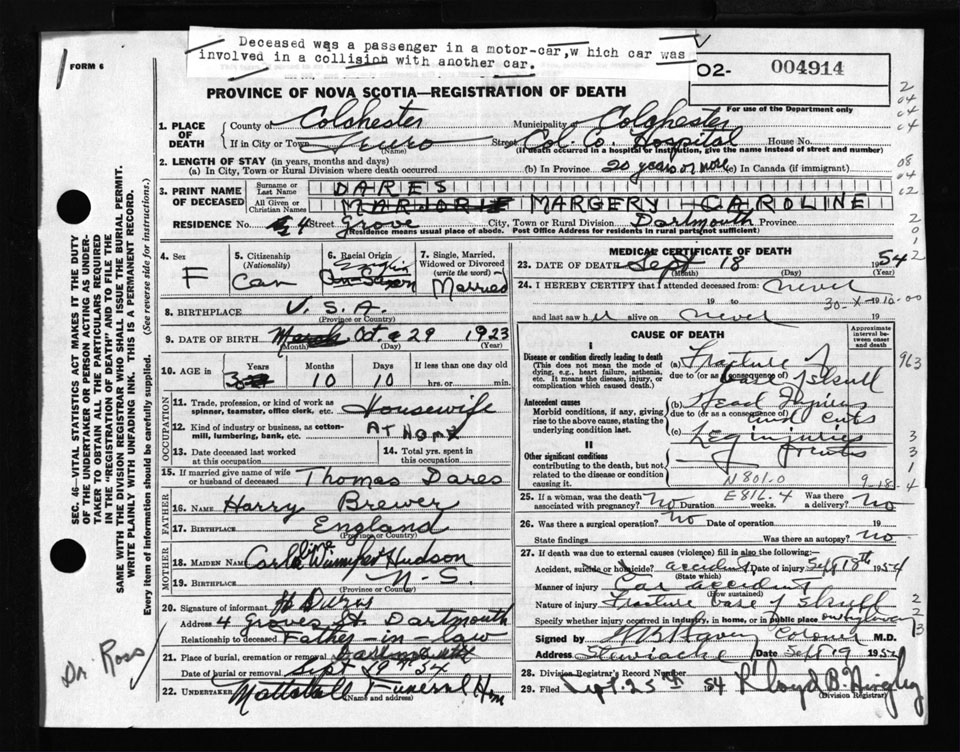 Deceased was a passenger in a motor-car,w hich car was
involved in a collision with another car.
FORM 6
O2- 004914
For use of the Department only
PROVINCE OF NOVA SCOTIA—REGISTRATION OF DEATH
1. PLACE OF DEATH County of Colchester Municipality of Colchester
If in City or Town Truro (Name) Street Col. Co. Hospital House No.
(If death occurred in a hospital or institution, give the name instead of street and number)
2. LENGTH OF STAY (in years, months and days)
(a) In City, Town or Rural Division where death occurred (b) In Province 20 years or more (c) In Canada (if immigrant)
3. PRINT NAME OF DECEASED Surname or Last Name DARES
All Given or Christian Names MARJORIE MARGERY CAROLINE
RESIDENCE No. 4 Street Grove City, Town or Rural Division Dartmouth Province
(Residence means usual place of abode. Post Office Address for residents in rural parts not sufficient)
4. Sex F
5. Citizenship (Nationality) Can
6. Racial Origin
7. Single, Married, Widowed or Divorced (write the word) Married
8. BIRTHPLACE U.S.A.
(Province or Country)
9. DATE OF BIRTH March Oct 29 1923
(Month) (Day) (Year)
10. AGE in Years Months 10 Days 10 If less than one day old
hrs. or min.
OCCUPATION
11. Trade, profession, or kind of work as spinner, teamster, office clerk, etc. Housewife
12. Kind of industry or business, as cotton-mill, lumbering, bank, etc. AT HOME
13. Date deceased last worked at this occupation
14. Total yrs. spent in this occupation
15. If married give name of wife or husband of deceased Thomas Dares
FATHER
16. Name Harry Brewer
17. Birthplace England
(Province or Country)
MOTHER
18. Maiden Name Hudson
19. Birthplace N-S.
(Province or Country)
20. Signature of informant
Address 4 Groves St. Dartmouth
Relationship to deceased Father-in-law
21. Place of burial, cremation or removal Dartmouth
Date of burial or removal Sept
22. UNDERTAKER Mattatall Funeral Hm
(Name and address)
MEDICAL CERTIFICATE OF DEATH
23. DATE OF DEATH Sept 18 1954
(Month) (Day) (Year)
24. I HEREBY CERTIFY that I attended deceased from never
19 to 19
30-X-10-00
and last saw h alive on never 19
CAUSE OF DEATH
Approximate interval between onset and death
I
Disease or condition directly leading to death
(This does not mean the mode of dying, e.g., heart failure, asthenia, etc. It means the disease, injury, or complication which caused death.)
(a) Fracture of
due to (or as consequence of) base of skull
Antecedent causes
Morbid conditions, if any, giving rise to the above cause, stating the underlying condition last.
(b) Head Injuries
due to (or as a consequence of) and cuts
(c) Leg injuries
II
Other significant conditions
contributing to the death, but not related to the disease or condition causing it.
N 801.0
9-18-4
963
E816.4
25. If a woman, was the death associated with pregnancy? no Duration weeks. Was there a delivery? no
26. Was there a surgical operation? no Date of operation 19
State findings Was there an autopsy? no
27. If death was due to external causes (violence) fill in also the following:
Accident, suicide or homicide? accident Date of injury Sept 18th 1954
(State which)
Manner of injury Car accident
(How sustained)
Nature of injury Fracture base of skull
Specify whether injury occurred in industry, in home, or in public place
Signed by Coroner M.D.
Address Stewiacke Date Sept 19 1954
28. Division Registrar's Record Number
29. Filed Sept. 25th 54 Lloyd B.
(Division Registrar)
SEC. 46—VITAL STATISTICS ACT MAKES IT THE DUTY
OF THE UNDERTAKER OR PERSON ACTING AS UNDER-
TAKER TO OBTAIN ALL THE PARTICULARS REQUIRED
IN THE "REGISTRATION OF DEATH" AND TO FILE THE
SAME WITH THE DIVISION REGISTRAR WHO SHALL ISSUE THE BURIAL PERMIT.
WRITE PLAINLY WITH UNFADING INK. THIS IS A PERMANENT RECORD.
Every item of information should be carefully supplied. (See reverse side for instructions.)
Dr. Ross